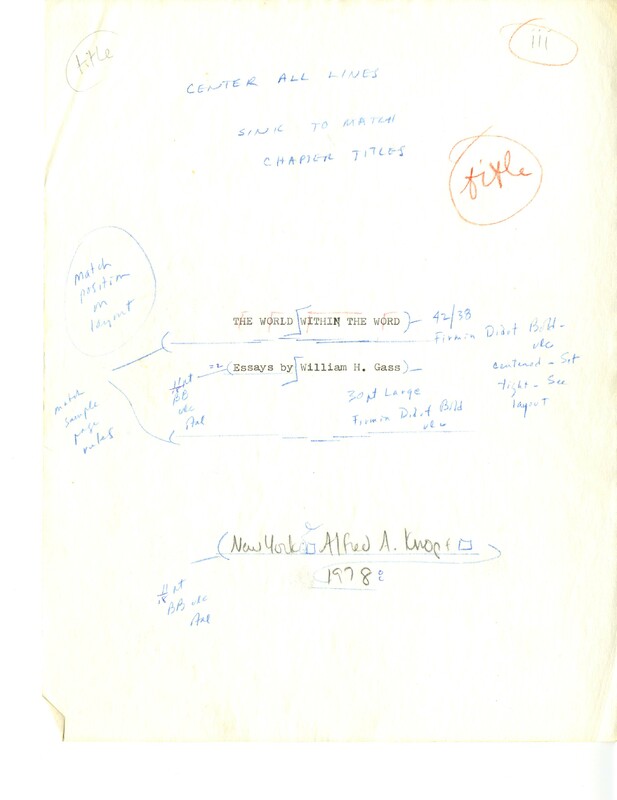 title
iii
CENTER ALL LINES
SINK TO MATCH
CHAPTER TITLES
title
match
position
on
layout
THE WORLD WITHIN THE WORD
42/38
Firmin Didot Bold -
ulc
centered - Set
tight - See
layout
Essays by William H. Gass
11 pt
18
BB
ulc
Ital
30 pt Large
Firmin Didot Bold
ulc
match
sample
page
rules
New York Alfred A. Knopf
1978
11 pt
18
BB ulc
Ital